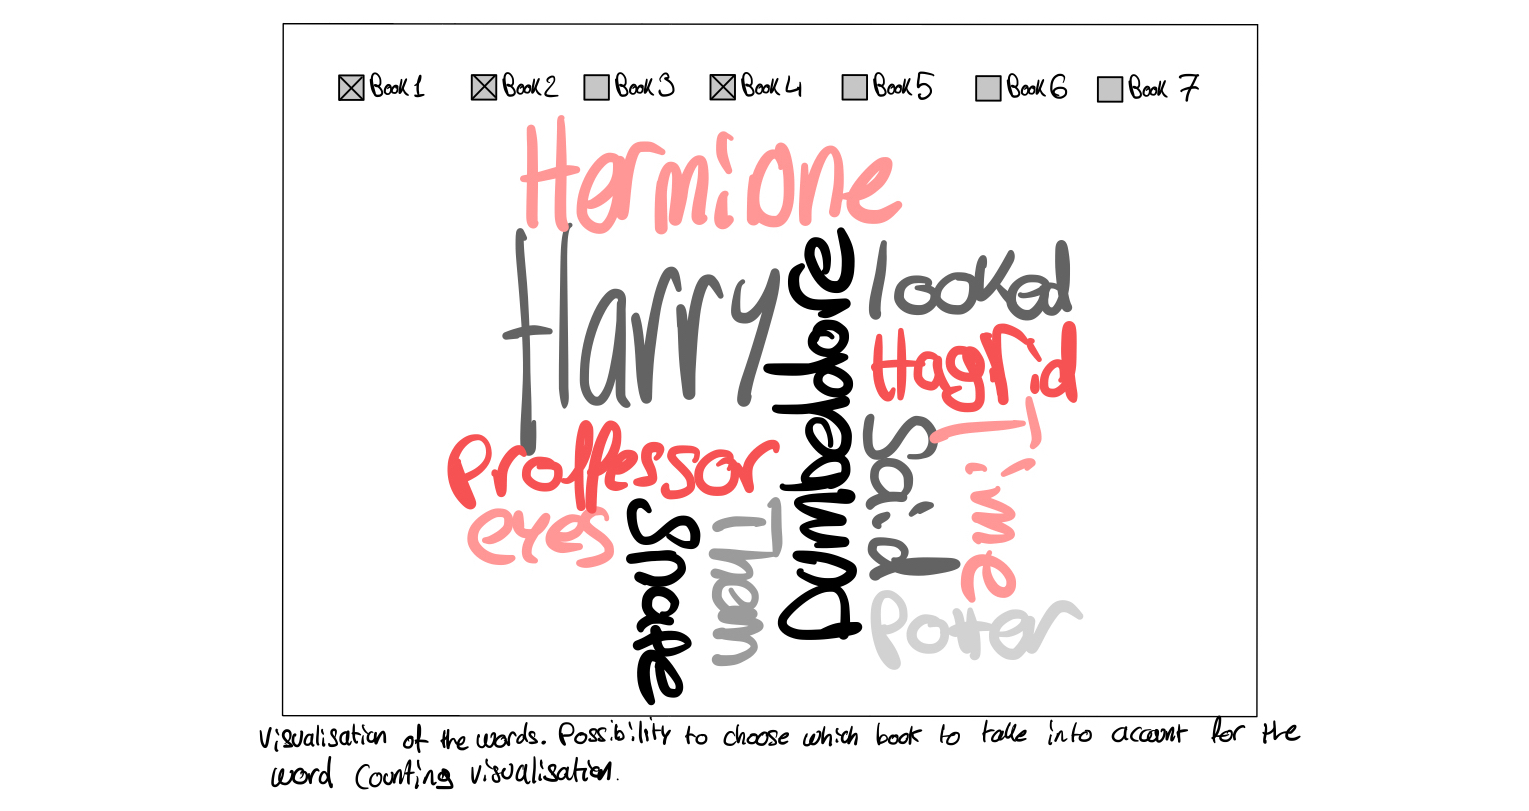 Book 1 Book 2 Book 3 Book 4 Book 5 Book 6 Book 7
Hermione
Harry
Dumbledore
looked
Hagrid
Proffessor
Said
Time
eyes
Snape
Them
Potter
Visualisation of the words. Possibility to choose which book to take into account for the
word counting visualisation.